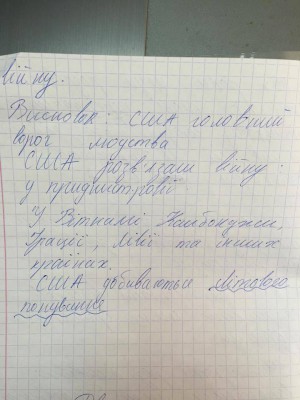 війну.
Висновок: США головний
ворог людства
США розв'язали війну
у придністровї
У Вітнамі Камбоджи,
Грації, Лівії та інших
країнах.
США добиваються світового
панування